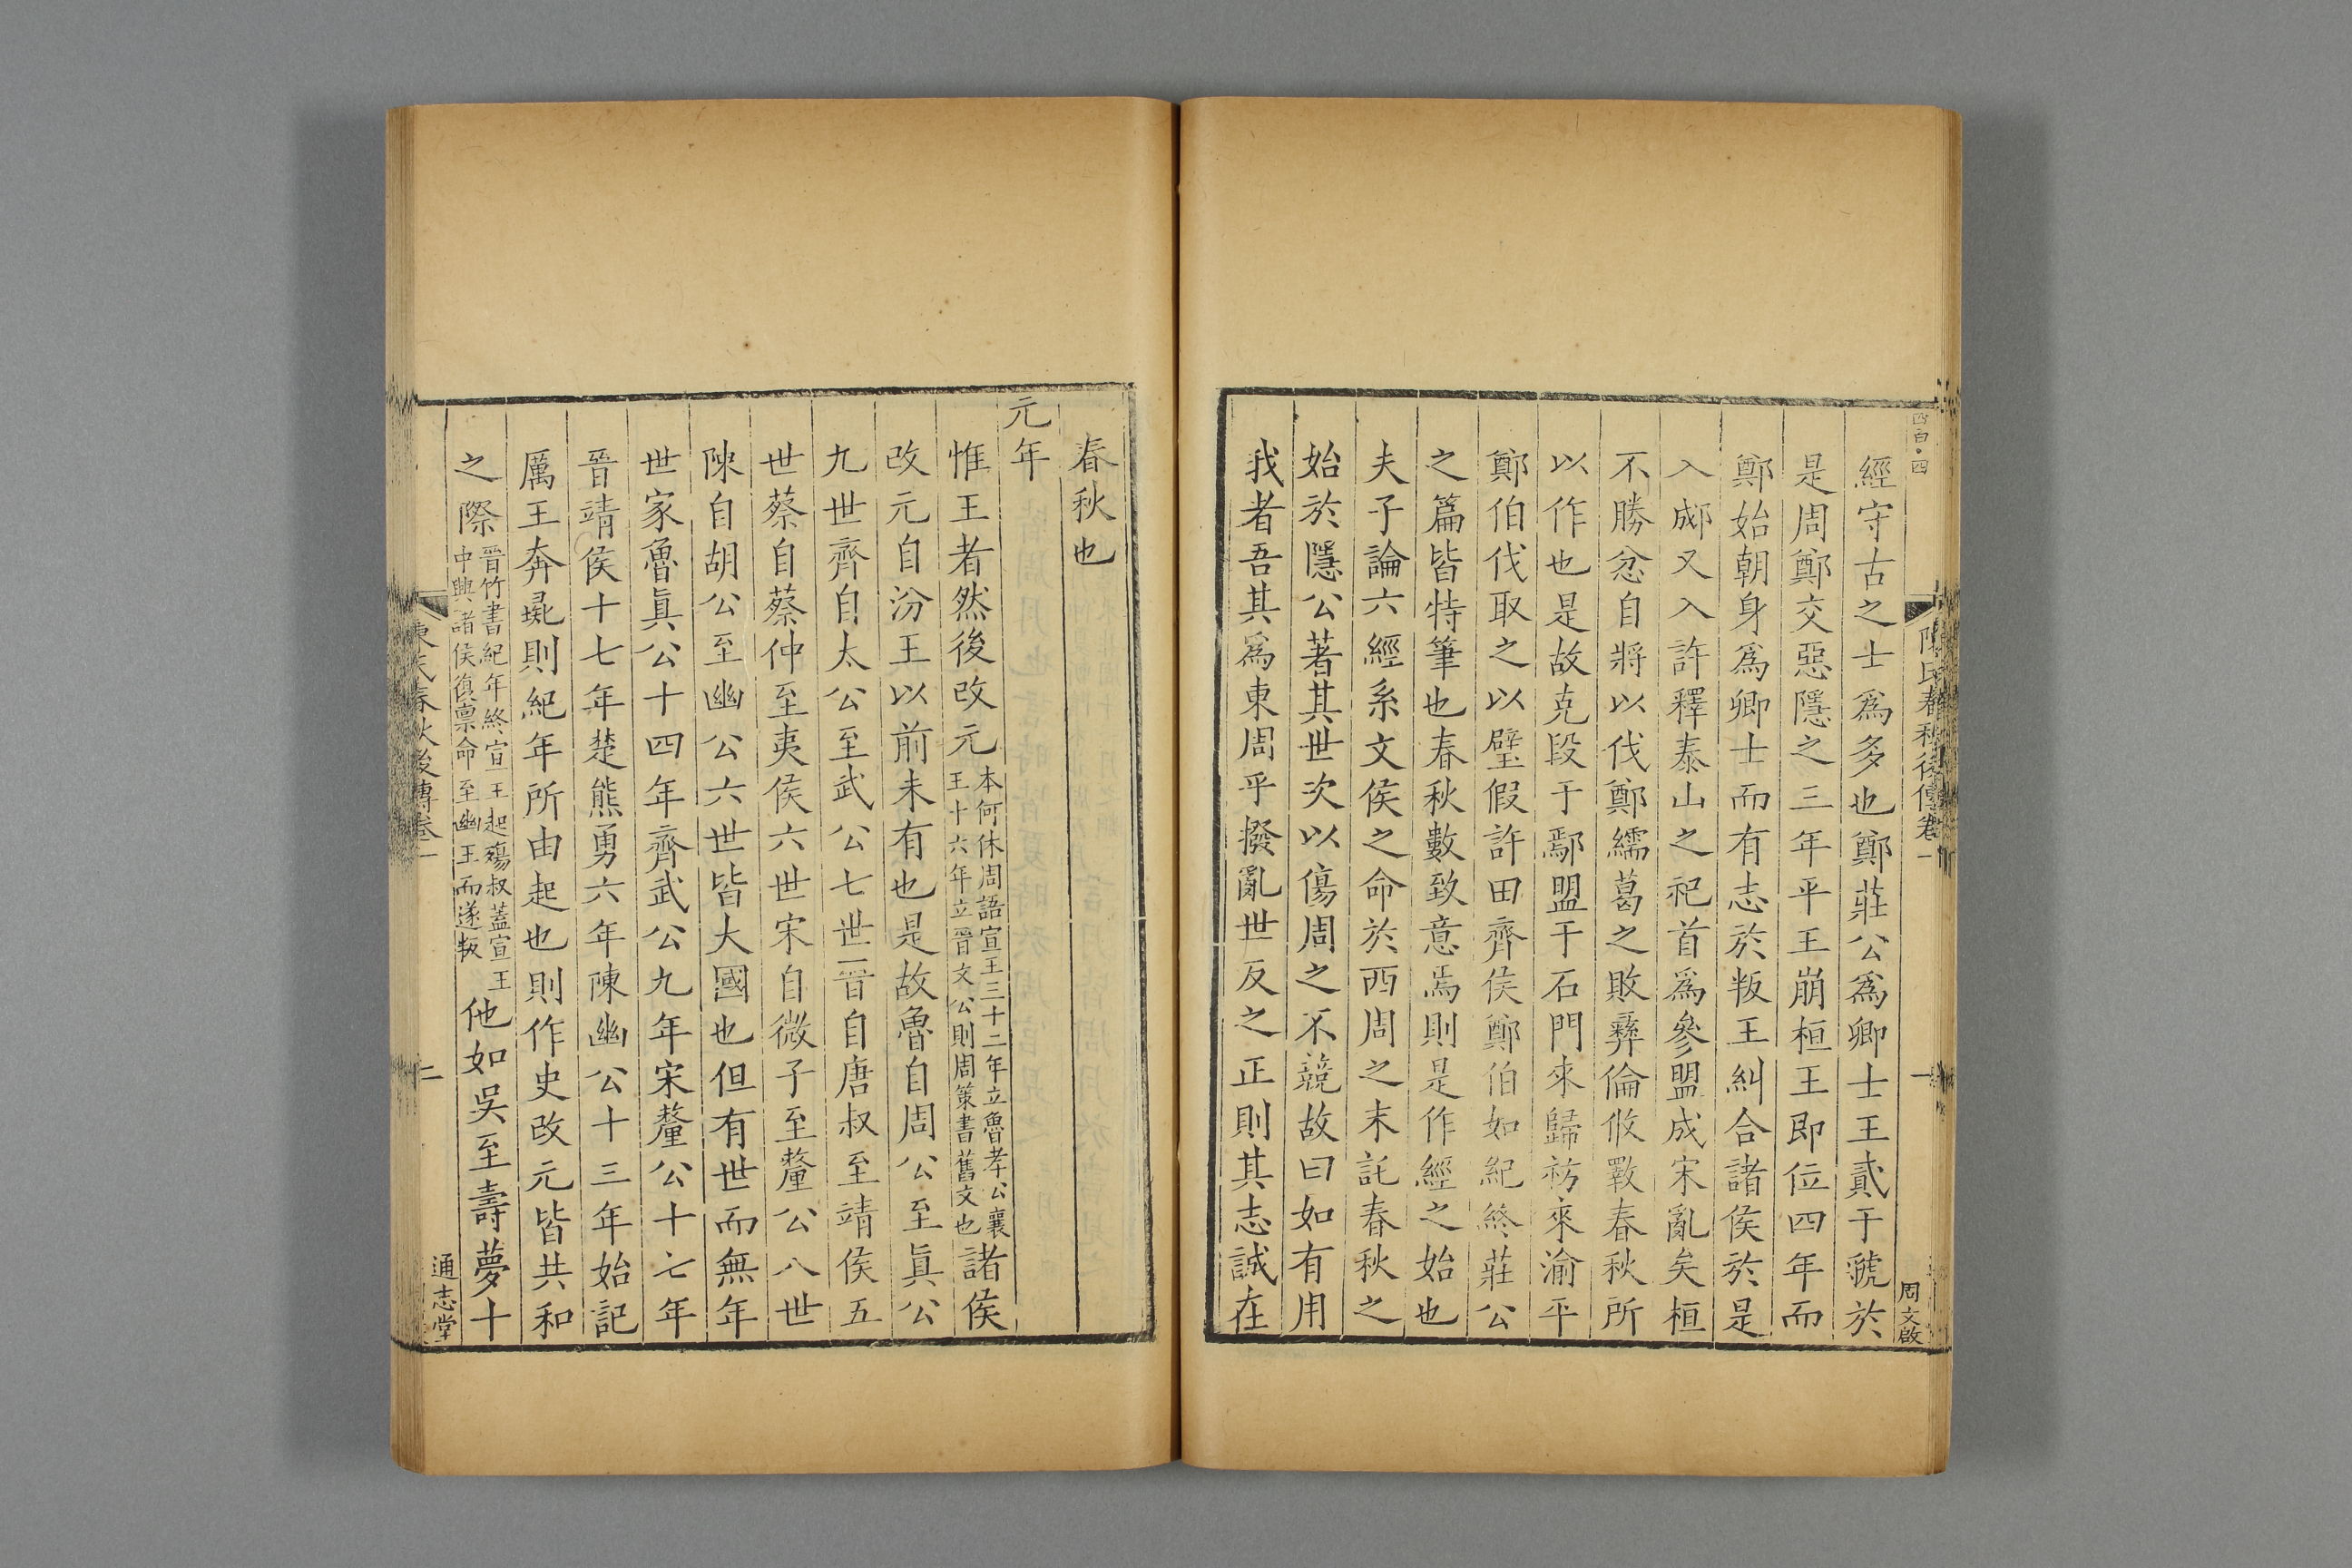 四百四
陳氏春秋後傳卷一
一
周文啟
經守古之士爲多也鄭莊公爲卿士王貳于虢於
是周鄭交惡隱之三年平王崩桓王即位四年而
鄭始朝身爲卿士而有志於叛王糾合諸侯於是
入郕又入許釋泰山之祀首爲參盟成宋亂矣桓
不勝忿自將以伐鄭繻葛之敗彝倫攸斁春秋所
以作也是故克段于鄢盟于石門來歸祊來渝平
鄭伯伐取之以璧假許田齊侯鄭伯如紀終莊公
之篇皆特筆也春秋數致意焉則是作經之始也
夫子論六經系文侯之命於西周之末託春秋之
始於隱公著其世次以傷周之不競故曰如有用
我者吾其爲東周乎撥亂世反之正則其志誠在
春秋也
元年
惟王者然後改元本何休周語宣王三十二年立魯孝公襄
王十六年立晉文公則周策書舊文也諸侯
改元自汾王以前未有也是故魯自周公至眞公
九世齊自太公至武公七世晉自唐叔至靖侯五
世蔡自蔡仲至夷侯六世宋自微子至釐公八世
陳自胡公至幽公六世皆大國也但有世而無年
世家魯眞公十四年齊武公九年宋釐公十七年
晉靖侯十七年楚熊勇六年陳幽公十三年始記
厲王奔彘則紀年所由起也則作史改元皆共和
之際晉竹書紀年終宣王起殤叔蓋宣王
中興諸侯復稟命至幽王而遂叛他如吳至壽夢十
陳氏春秋後傳卷一
二
通志堂